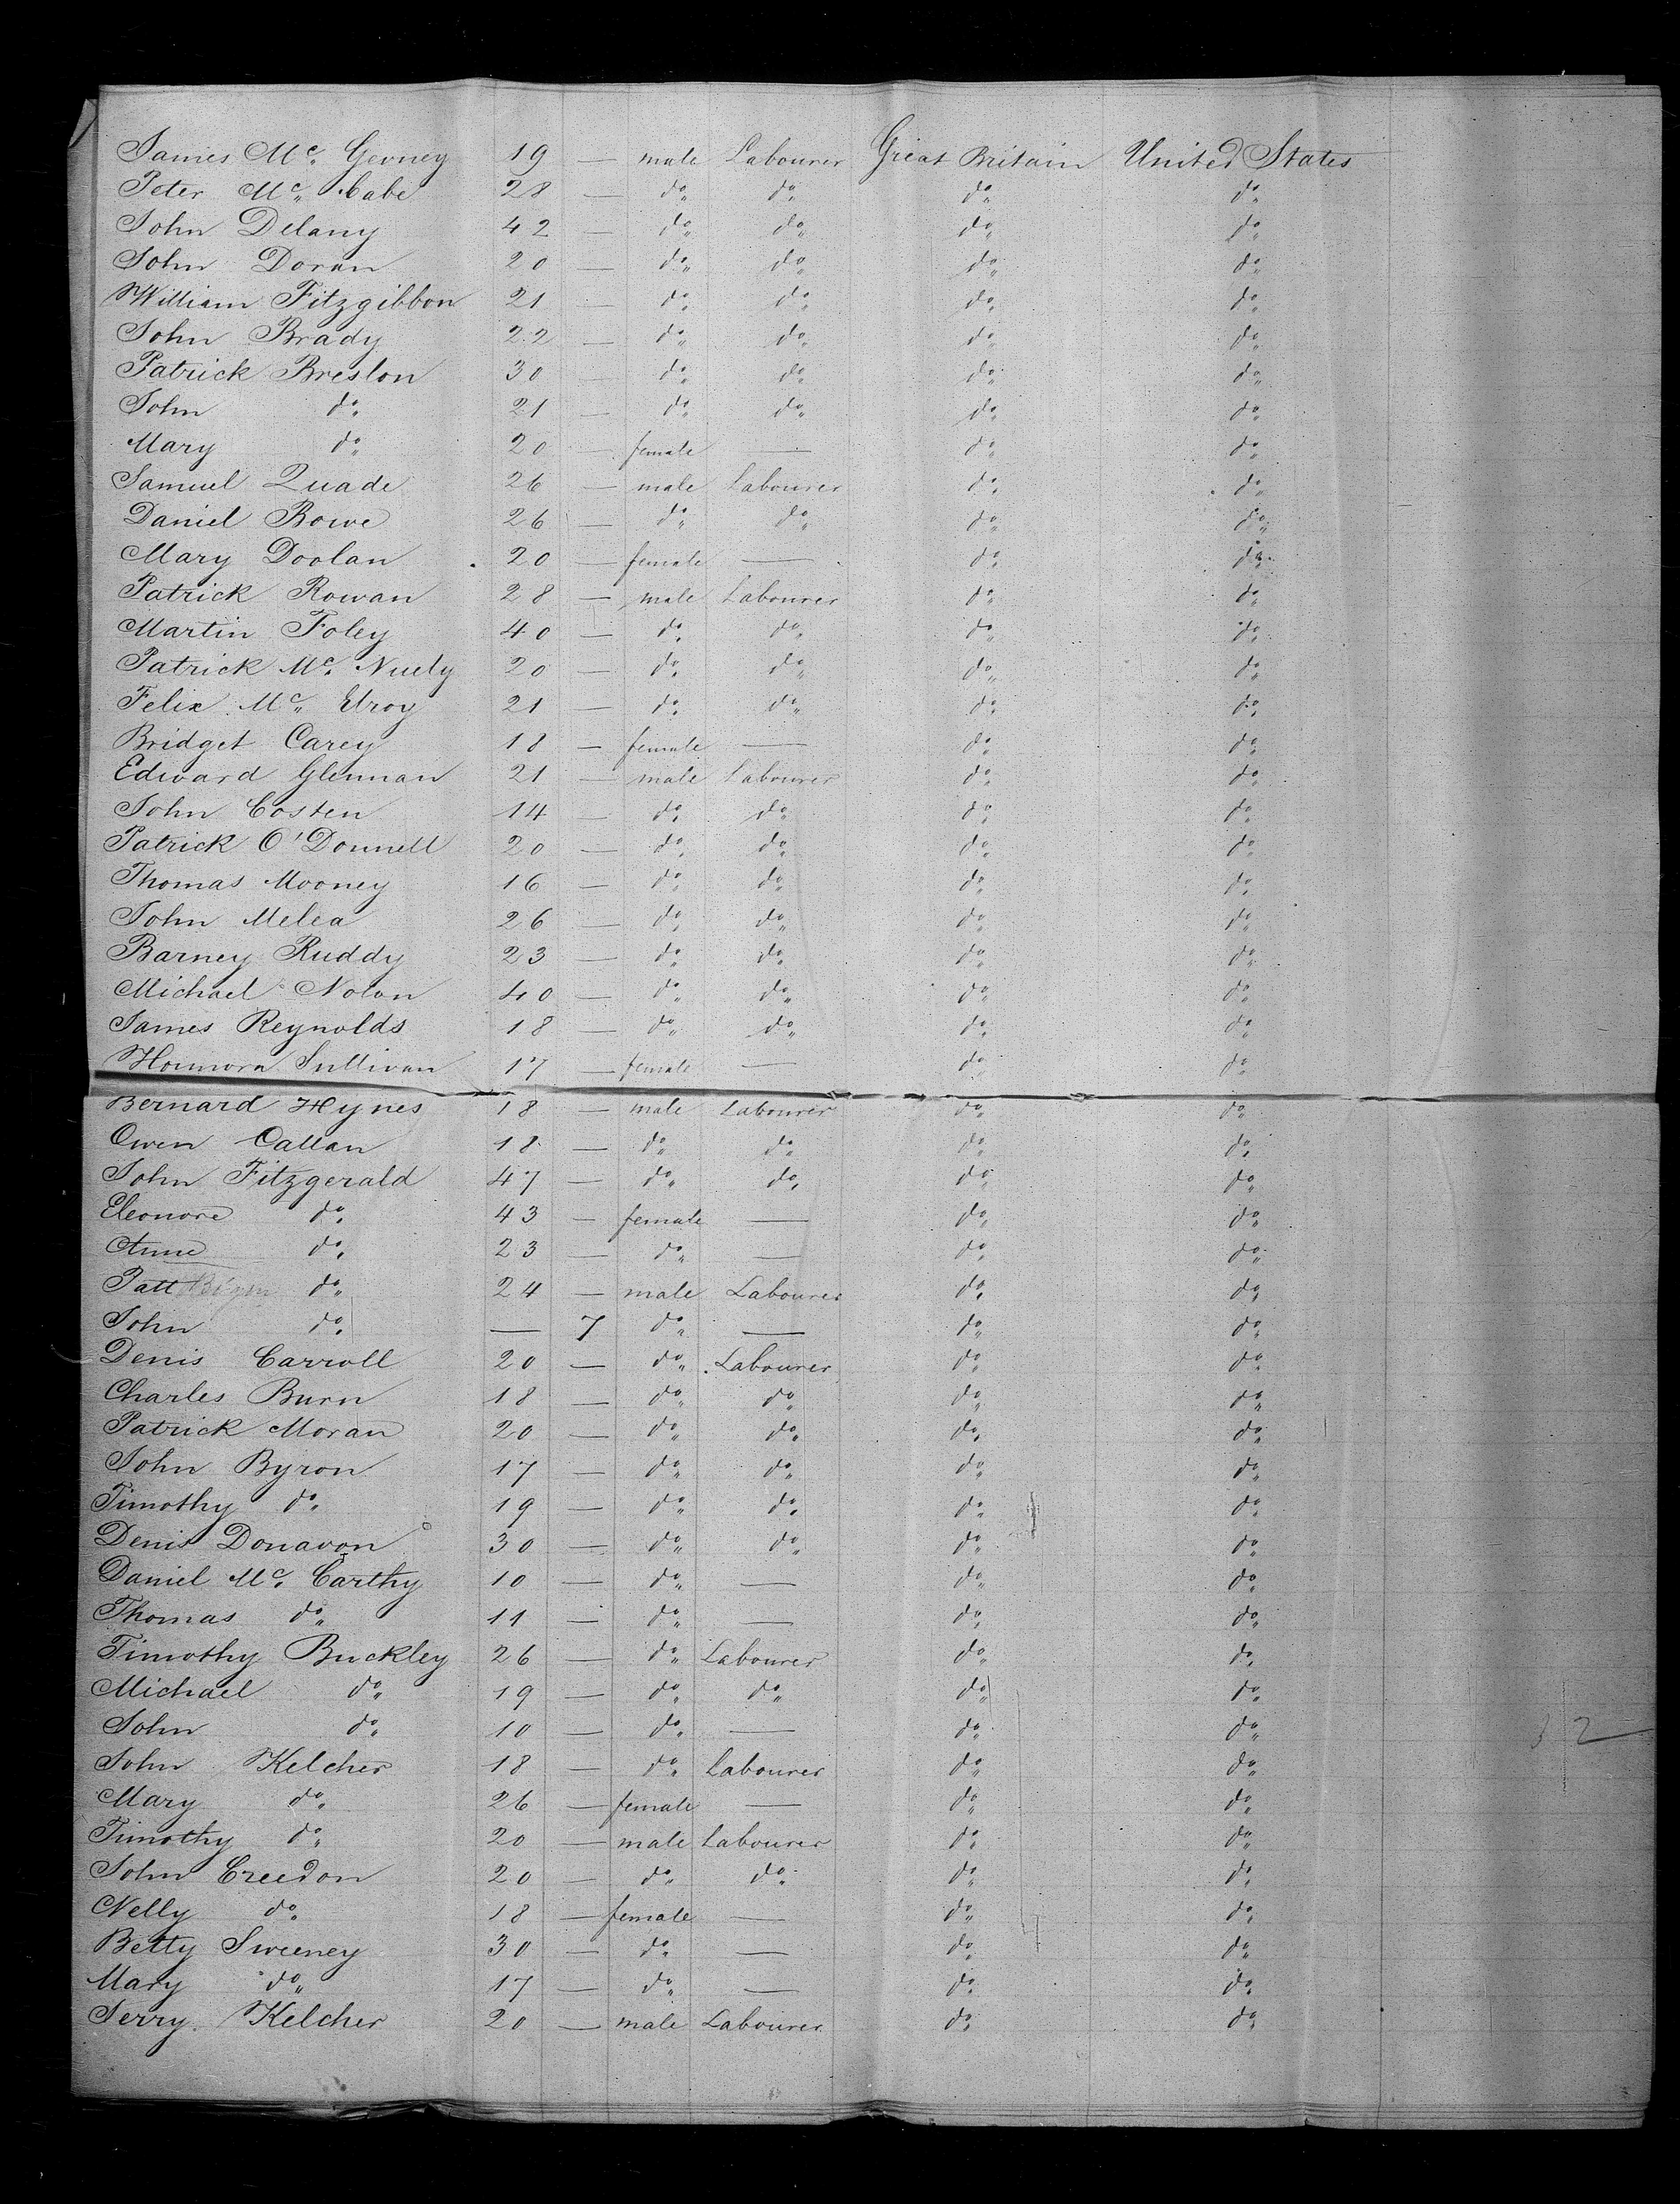 James Mc. Gevney 19 — male Labourer Great Britain United States
Peter Mc. Cabe 28 — do do do do
John Delany 42 — do do do do
John Doran 20 — do do do do
William Fitzgibbon 21 — do do do do
John Brady 22 — do do do do
Patrick Breslon 30 — do do do do
John do 21 — do do do do
Mary do 20 — female — do do
Samuel Quade 26 — male Labourer do do
Daniel Bowe 26 — do do do do
Mary Doolan 20 — female — do do
Patrick Rowan 28 — male Labourer do do
Martin Foley 40 — do do do do
Patrick Mc. 20 — do do do do
Felix Mc. Elroy 21 — do do do do
Bridget Carey 18 — female — do do
Edward Glennan 21 — male Labourer do do
John Costen 14 — do do do do
Patrick O'Donnell 20 — do do do do
Thomas Mooney 16 — do do do do
John Melea 26 — do do do do
Barney Ruddy 23 — do do do do
Michael Nolan 40 — do do do do
James Reynolds 18 — do do do do
Honnora Sullivan 17 — female — do do
Bernard Hynes 18 — male Labourer do do
Owen Callan 18 — do do do do
John Fitzgerald 47 — do do do do
Eleonore do 43 — female — do do
Anne do 23 — do — do do
Patt do 24 — male Labourer do do
John do — 7 do — do do
Denis Carroll 20 — do Labourer do do
Charles Burn 18 — do do do do
Patrick Moran 20 — do do do do
John Byron 17 — do do do do
Timothy do 19 — do do do do
Denis Donavon 30 — do do do do
Daniel Mc. Carthy 10 — do — do do
Thomas do 11 — do — do do
Timothy Buckley 26 — do Labourer do do
Michael do 19 — do do do do
John do 10 — do — do do
John Kelcher 18 — do Labourer do do
Mary do 26 — female — do do
Timothy do 20 — male Labourer do do
John Creedon 20 — do do do do
Nelly do 18 — female — do do
Betty Sweeney 30 — do — do do
Mary do 17 — do — do do
Jerry Kelcher 20 — male Labourer do do